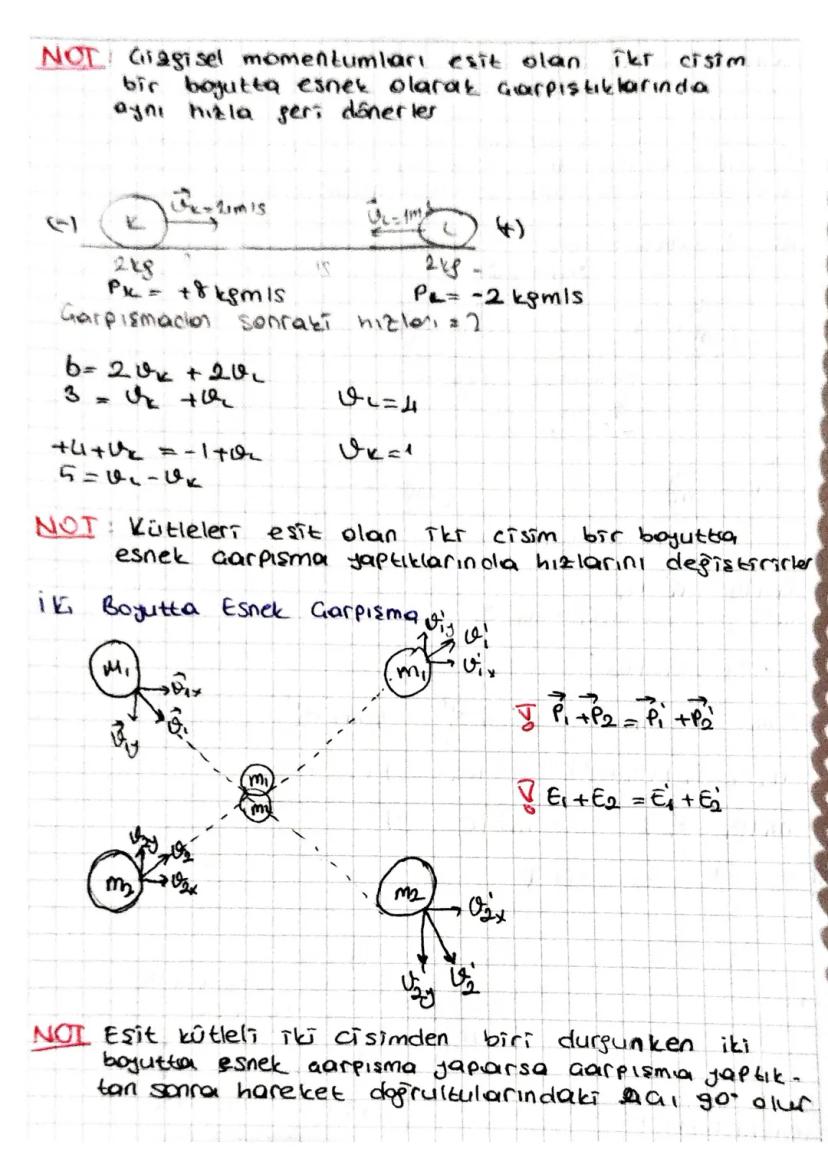 NOT: Çizgisel momentumları eşit olan iki cisim
bir boyutta esnek olarak çarpıştıklarında
aynı hızla geri dönerler
(-) K v⃗K=4m/s v⃗L=1m/s L (+)
2kg 2kg
PK = +8 kgm/s PL= -2 kgm/s
Çarpışmadan sonraki hızları = ?
6= 2vK + 2vL
3 = vK + vL vL=4
+4+vK = -1+vL vK=1
5 = vL - vK
NOT: Kütleleri eşit olan iki cisim bir boyutta
esnek çarpışma yaptıklarında hızlarını değiştirirler
İki Boyutta Esnek Çarpışma
v1y' v1' v1x'
M1 v⃗1x v⃗1 v⃗1y
m1
P⃗1 + P⃗2 = P⃗1' + P⃗2'
m1
m2
E1 + E2 = E1' + E2'
v2y v2 v2x
m2
m2 v2x'
v2y' v2'
NOT Eşit kütleli iki cisimden biri durgunken iki
boyutta esnek çarpışma yaparsa çarpışma yaptık-
tan sonra hareket doğrultularındaki açı 90° olur